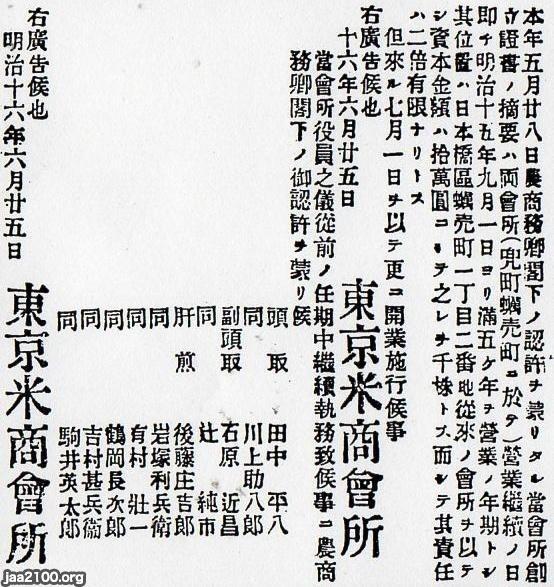 本年五月廿八日農商務卿閣下ノ認許ヲ蒙リタル當會所創
立證書ノ摘要ハ兩會所(兜町蠣売町ニ於テ)營業繼續ノ日
即チ明治十五年九月一日ヨリ滿五ケ年ヲ營業ノ年期トシ
其位置ハ日本橋區蠣売町一丁目二番地從來ノ會所ヲ以テ
シ資本金額ハ拾萬圓ニシテ之レヲ千株トス而シテ其責任
ハ二倍有限ナリトス
但來ル七月一日ヲ以テ更ニ開業施行候事
右廣告候也
十六年六月廿五日
東京米商會所
當會所役員之儀從前ノ任期中繼續執務致候事ニ農商
務卿閣下ノ御認許ヲ蒙リ候
頭取 田中平八
同 川上助八郎
副頭取 石原近昌
同 辻純市
肝煎 後藤庄吉郎
同 岩塚利兵衞
同 有村壯一
同 鶴岡長次郎
同 吉村甚兵衞
同 駒井英太郎
右廣告候也
明治十六年六月廿五日
東京米商會所
jaa2100.org